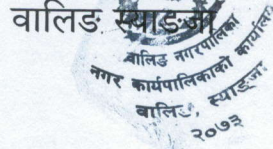 वालिङ स्याङजा
वालिङ नगरपालिका
नगर कार्यपालिकाको कार्यालय
वालिङ, स्याङ्जा
२०७३